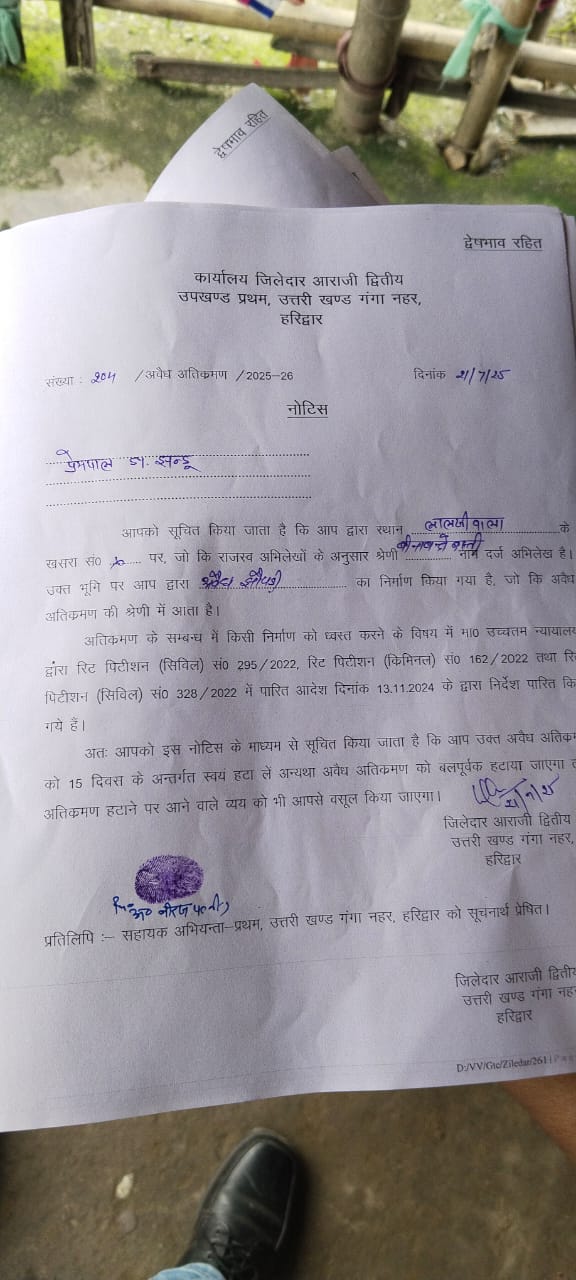 द्वेषभाव रहित
द्वेषभाव रहित
कार्यालय जिलेदार आराजी द्वितीय
उपखण्ड प्रथम, उत्तरी खण्ड गंगा नहर,
हरिद्वार
संख्या : 204 /अवैध अतिक्रमण /2025-26 दिनांक 21/7/25
नोटिस
प्रेमपाल S/. झन्डू
आपको सूचित किया जाता है कि आप द्वारा स्थान लालजी वाला के
खसरा सं० पर, जो कि राजस्व अभिलेखों के अनुसार श्रेणी नाम दर्ज अभिलेख है।
उक्त भूमि पर आप द्वारा अवैध झोपड़ी का निर्माण किया गया है, जो कि अवैध
अतिक्रमण की श्रेणी में आता है।
अतिक्रमण के सम्बन्ध में किसी निर्माण को ध्वस्त करने के विषय में मा० उच्चतम न्यायालय
द्वारा रिट पिटीशन (सिविल) सं० 295/2022, रिट पिटीशन (किमिनल) सं० 162/2022 तथा रि
पिटीशन (सिविल) सं० 328/2022 में पारित आदेश दिनांक 13.11.2024 के द्वारा निर्देश पारित कि
गये हैं।
अतः आपको इस नोटिस के माध्यम से सूचित किया जाता है कि आप उक्त अवैध अतिक्रम
को 15 दिवस के अन्तर्गत स्वयं हटा लें अन्यथा अवैध अतिक्रमण को बलपूर्वक हटाया जाएगा
अतिक्रमण हटाने पर आने वाले व्यय को भी आपसे वसूल किया जाएगा।
21/7/25
जिलेदार आराजी द्वितीय
उत्तरी खण्ड गंगा नहर,
हरिद्वार
नीरज पत्नी
प्रतिलिपि :– सहायक अभियन्ता-प्रथम, उत्तरी खण्ड गंगा नहर, हरिद्वार को सूचनार्थ प्रेषित।
जिलेदार आराजी द्वितीय
उत्तरी खण्ड गंगा नहर
हरिद्वार
D:/VV/Gtc/Ziledar/261 | Pa